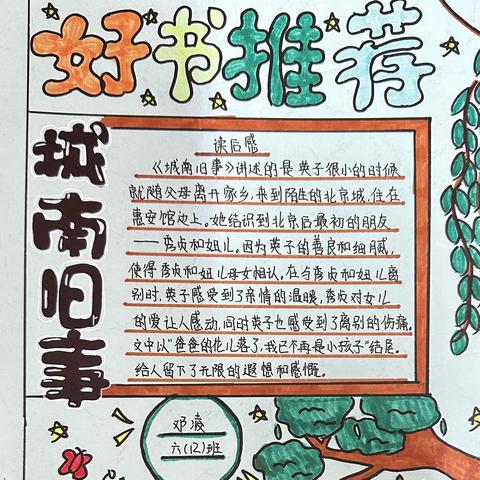 好书推荐
城南旧事
读后感
《城南旧事》讲述的是英子很小的时候
就随父母离开家乡,来到陌生的北京城,住在
惠安馆边上。她结识到北京后最初的朋友
——秀贞和妞儿。因为英子的善良和细腻,
使得秀贞和妞儿母女相认。在与秀贞和妞儿离
别时,英子感受到了亲情的温暖,秀贞对女儿
的爱让人感动,同时英子也感受到了离别的伤痛。
文中以“爸爸的花儿落了,我已不再是小孩子”结尾。
给人留下了无限的遐想和感慨。
邓凌
六(12)班